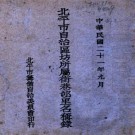 中華民國二十一年元月
北平市自治區坊所屬街巷邨里名稱錄
北平市籌備自治委員會印行